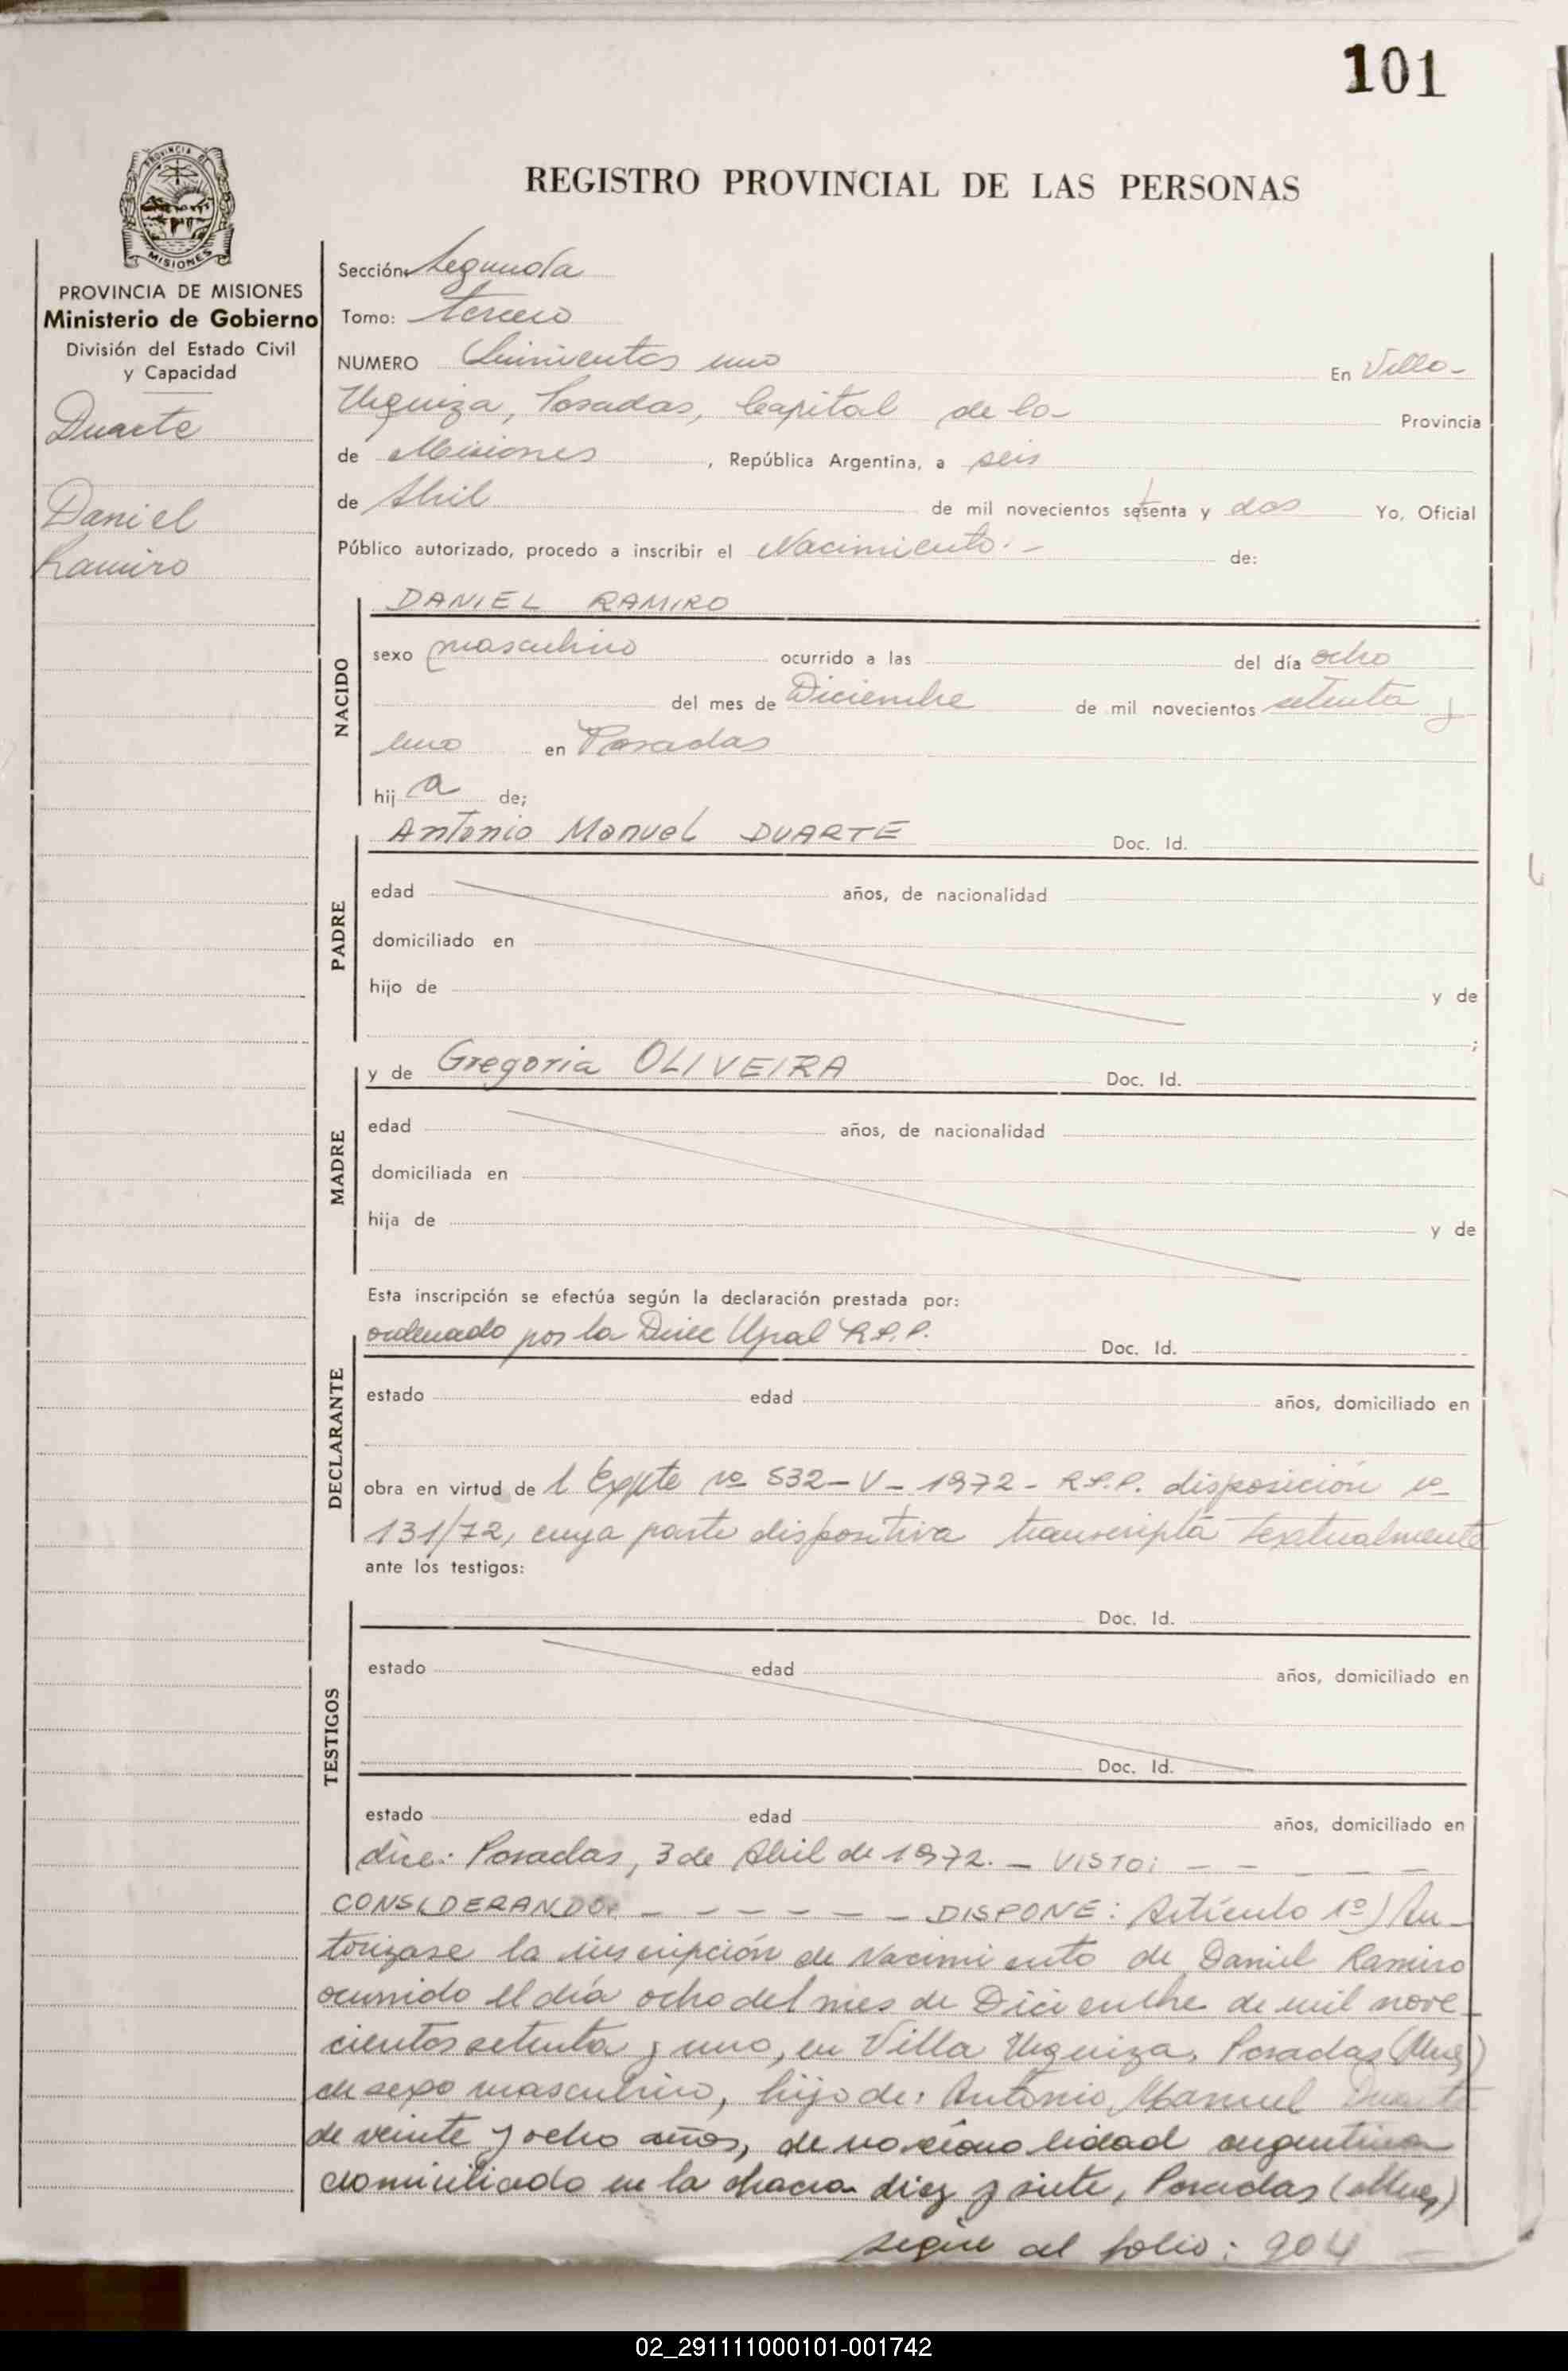 101
PROVINCIA DE
MISIONES
PROVINCIA DE MISIONES
Ministerio de Gobierno
División del Estado Civil
y Capacidad
Duarte
Daniel
Ramiro
REGISTRO PROVINCIAL DE LAS PERSONAS
Sección: Segunda
Tomo: tercero
NUMERO Quinientos uno En Villa-
Urquiza, Posadas, Capital de la- Provincia
de Misiones, República Argentina, a seis
de Abril de mil novecientos setenta y dos Yo, Oficial
Público autorizado, procedo a inscribir el Nacimiento.- de:
NACIDO
DANIEL RAMIRO
sexo masculino ocurrido a las del día ocho
del mes de Diciembre de mil novecientos setenta y
uno en Posadas
hij a de;
PADRE
Antonio Manuel DUARTE Doc. Id.
edad años, de nacionalidad
domiciliado en
hijo de y de
;
MADRE
y de Gregoria OLIVEIRA Doc. Id.
edad años, de nacionalidad
domiciliada en
hija de y de
Esta inscripción se efectúa según la declaración prestada por:
DECLARANTE
ordenado por la Direc R.P.P. Doc. Id.
estado edad años, domiciliado en
obra en virtud de l Expte nº 532-V-1972- R.P.P. disposición nº
131/72, cuya parte dispositiva transcripta textualmente
ante los testigos:
TESTIGOS
Doc. Id.
estado edad años, domiciliado en
Doc. Id.
estado edad años, domiciliado en
dice: Posadas, 3 de Abril de 1972. - VISTO: - - - - -
CONSIDERANDO: - - - - - - DISPONE: Artículo 1º) Au-
torizase la inscripción de Nacimiento de Daniel Ramiro
ocurrido el día ocho del mes de Diciembre de mil nove-
cientos setenta y uno, en Villa Urquiza, Posadas (Mnes)
de sexo masculino, hijo de: Antonio Manuel Duarte
de veinte y ocho años, de nacionalidad argentina
domiciliado en la chacra diez y siete, Posadas (Mnes)
sigue al folio: 204
02_291111000101-001742